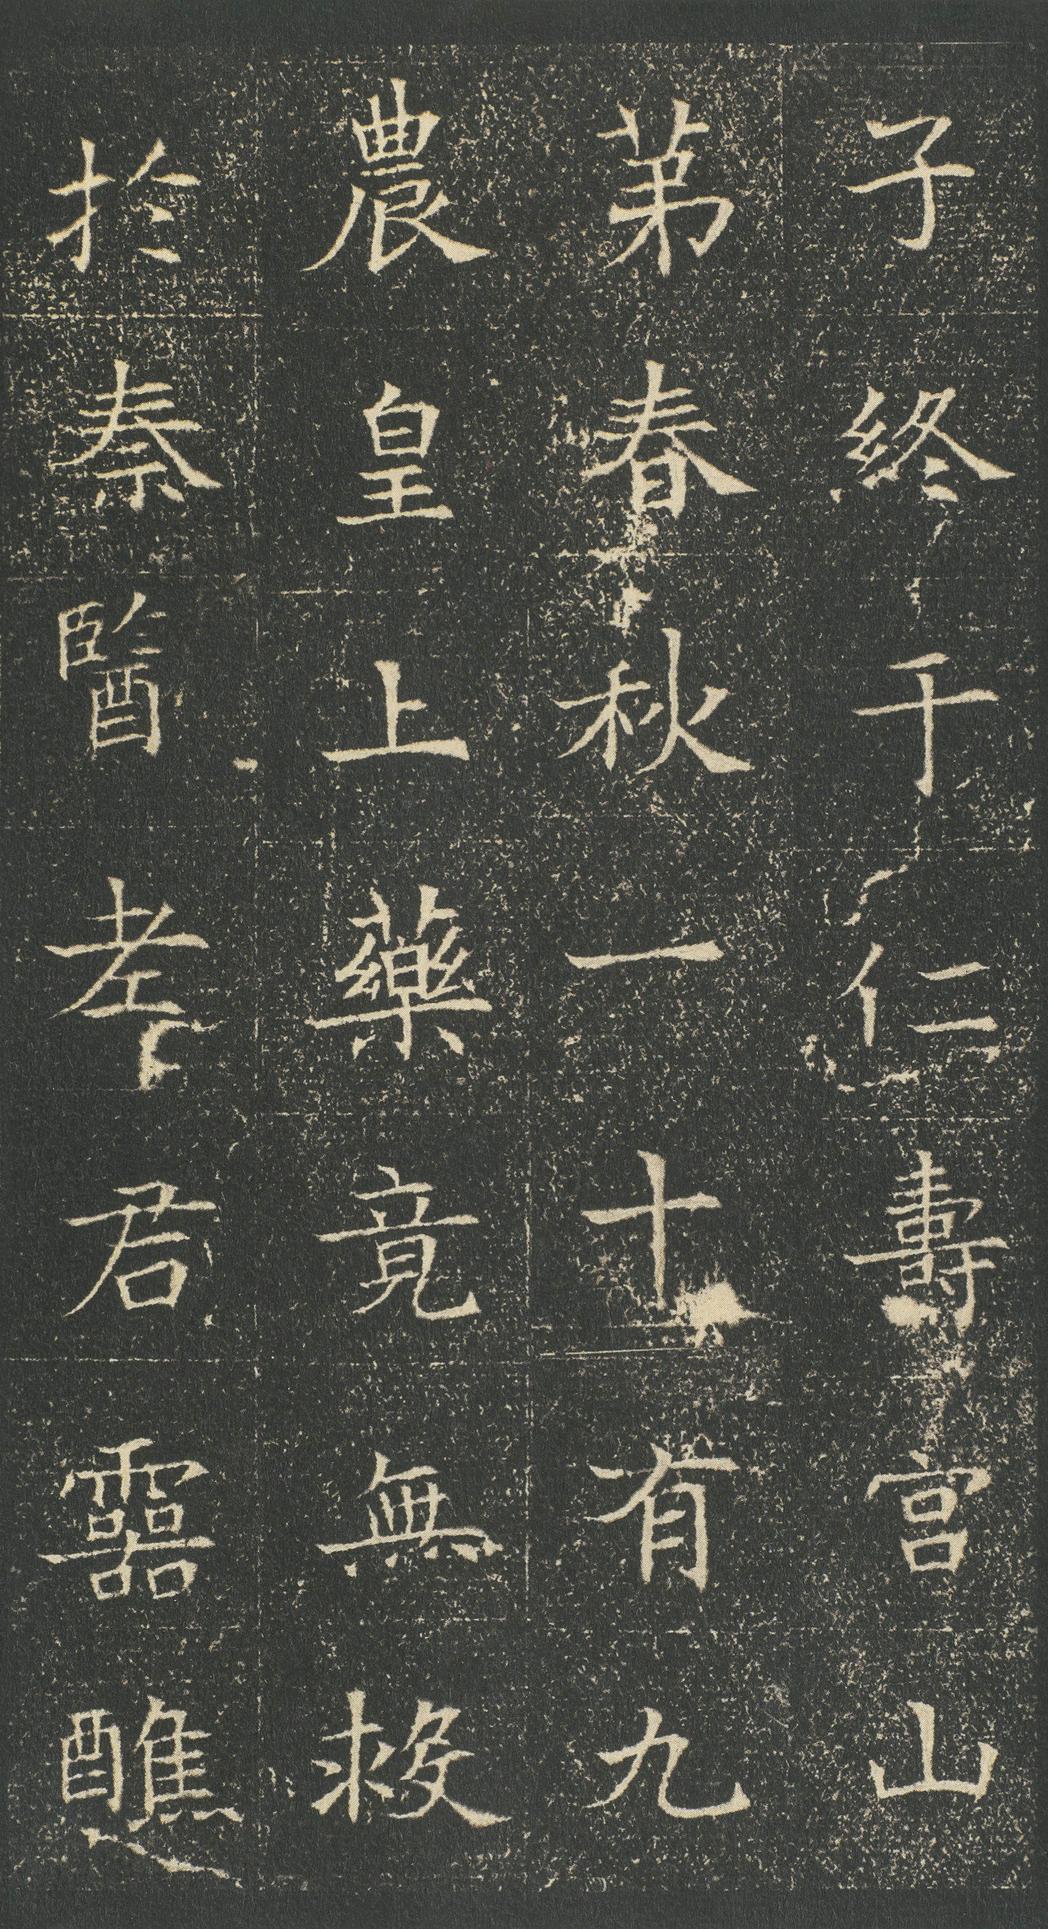 子終于仁壽宫山
苐春秋一十有九
農皇上藥竟無救
扵秦醫老君靈醮